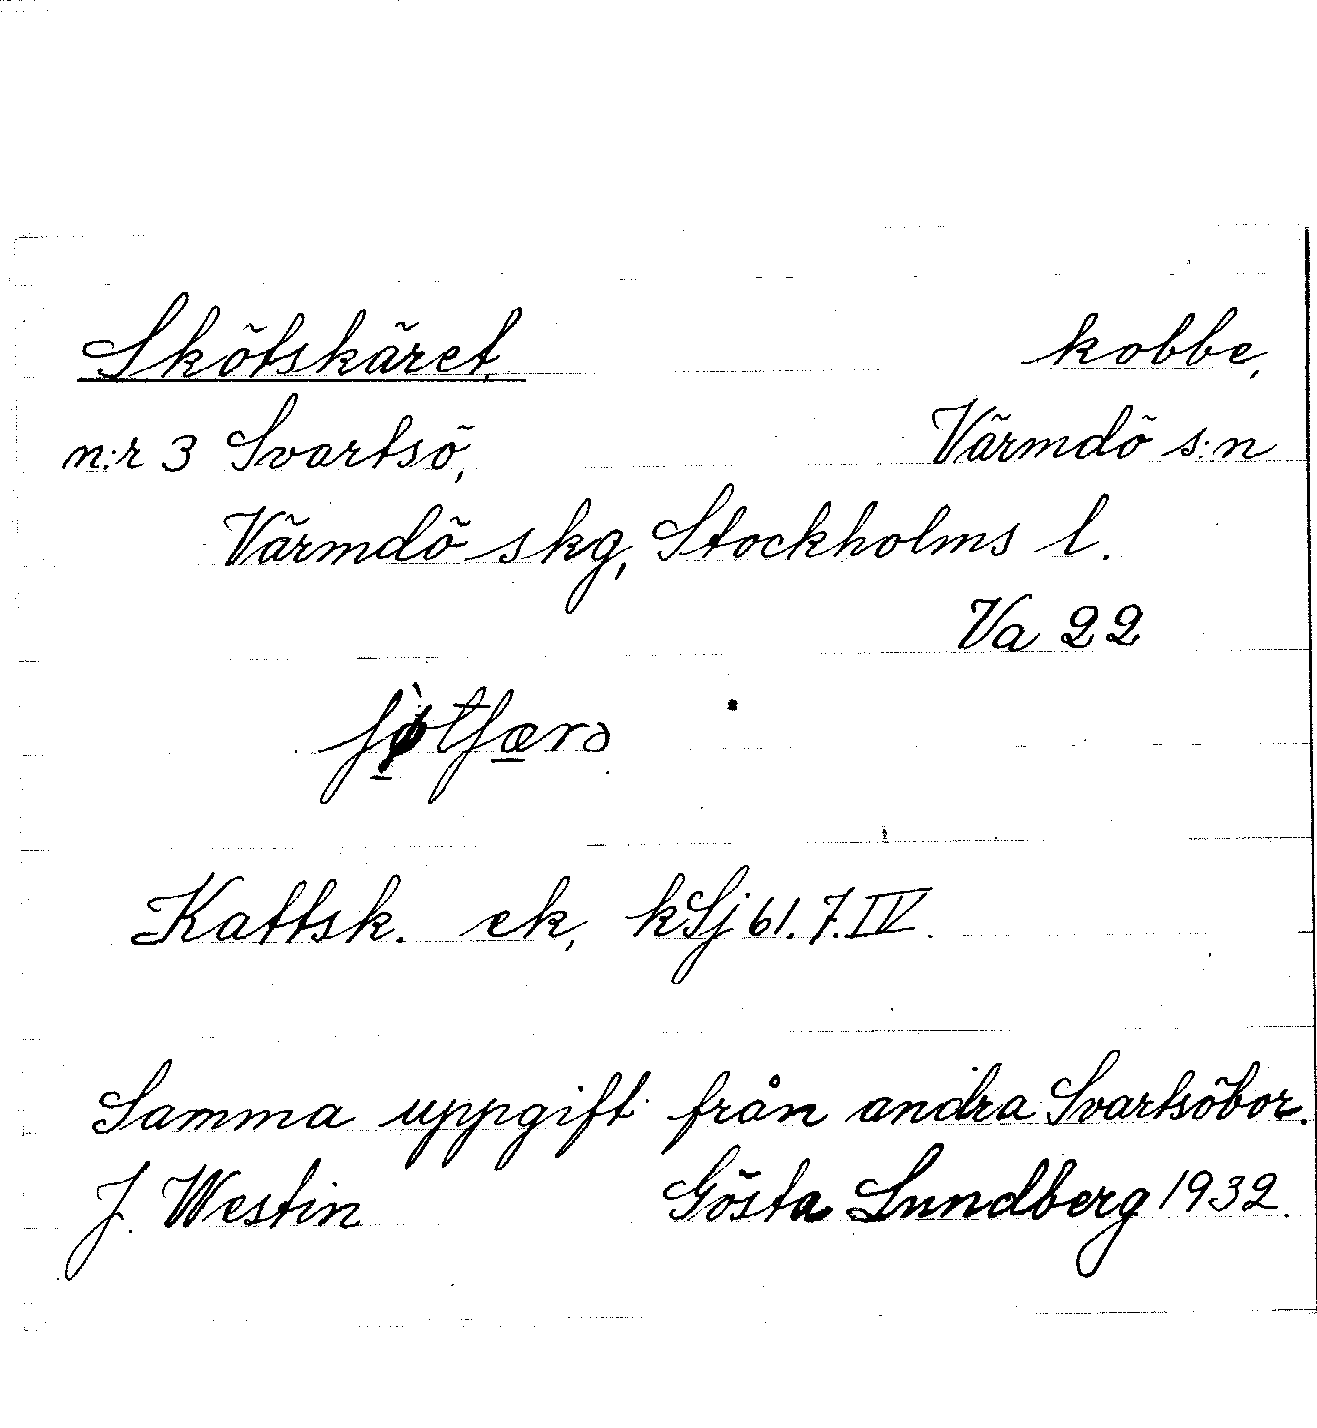 Skötskäret, kobbe,
n:r 3 Svartsö, Värmdö s:n
Värmdö skg, Stockholms l.
Va 22
Kattsk. ek, kSj 61.7.IV.
Samma uppgift från andra Svartsöbor.
J. Westin Gösta Lundberg 1932.